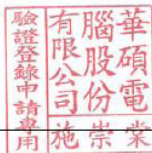 華碩電
腦股份
有限公司
驗證登錄申請專用
施崇棠